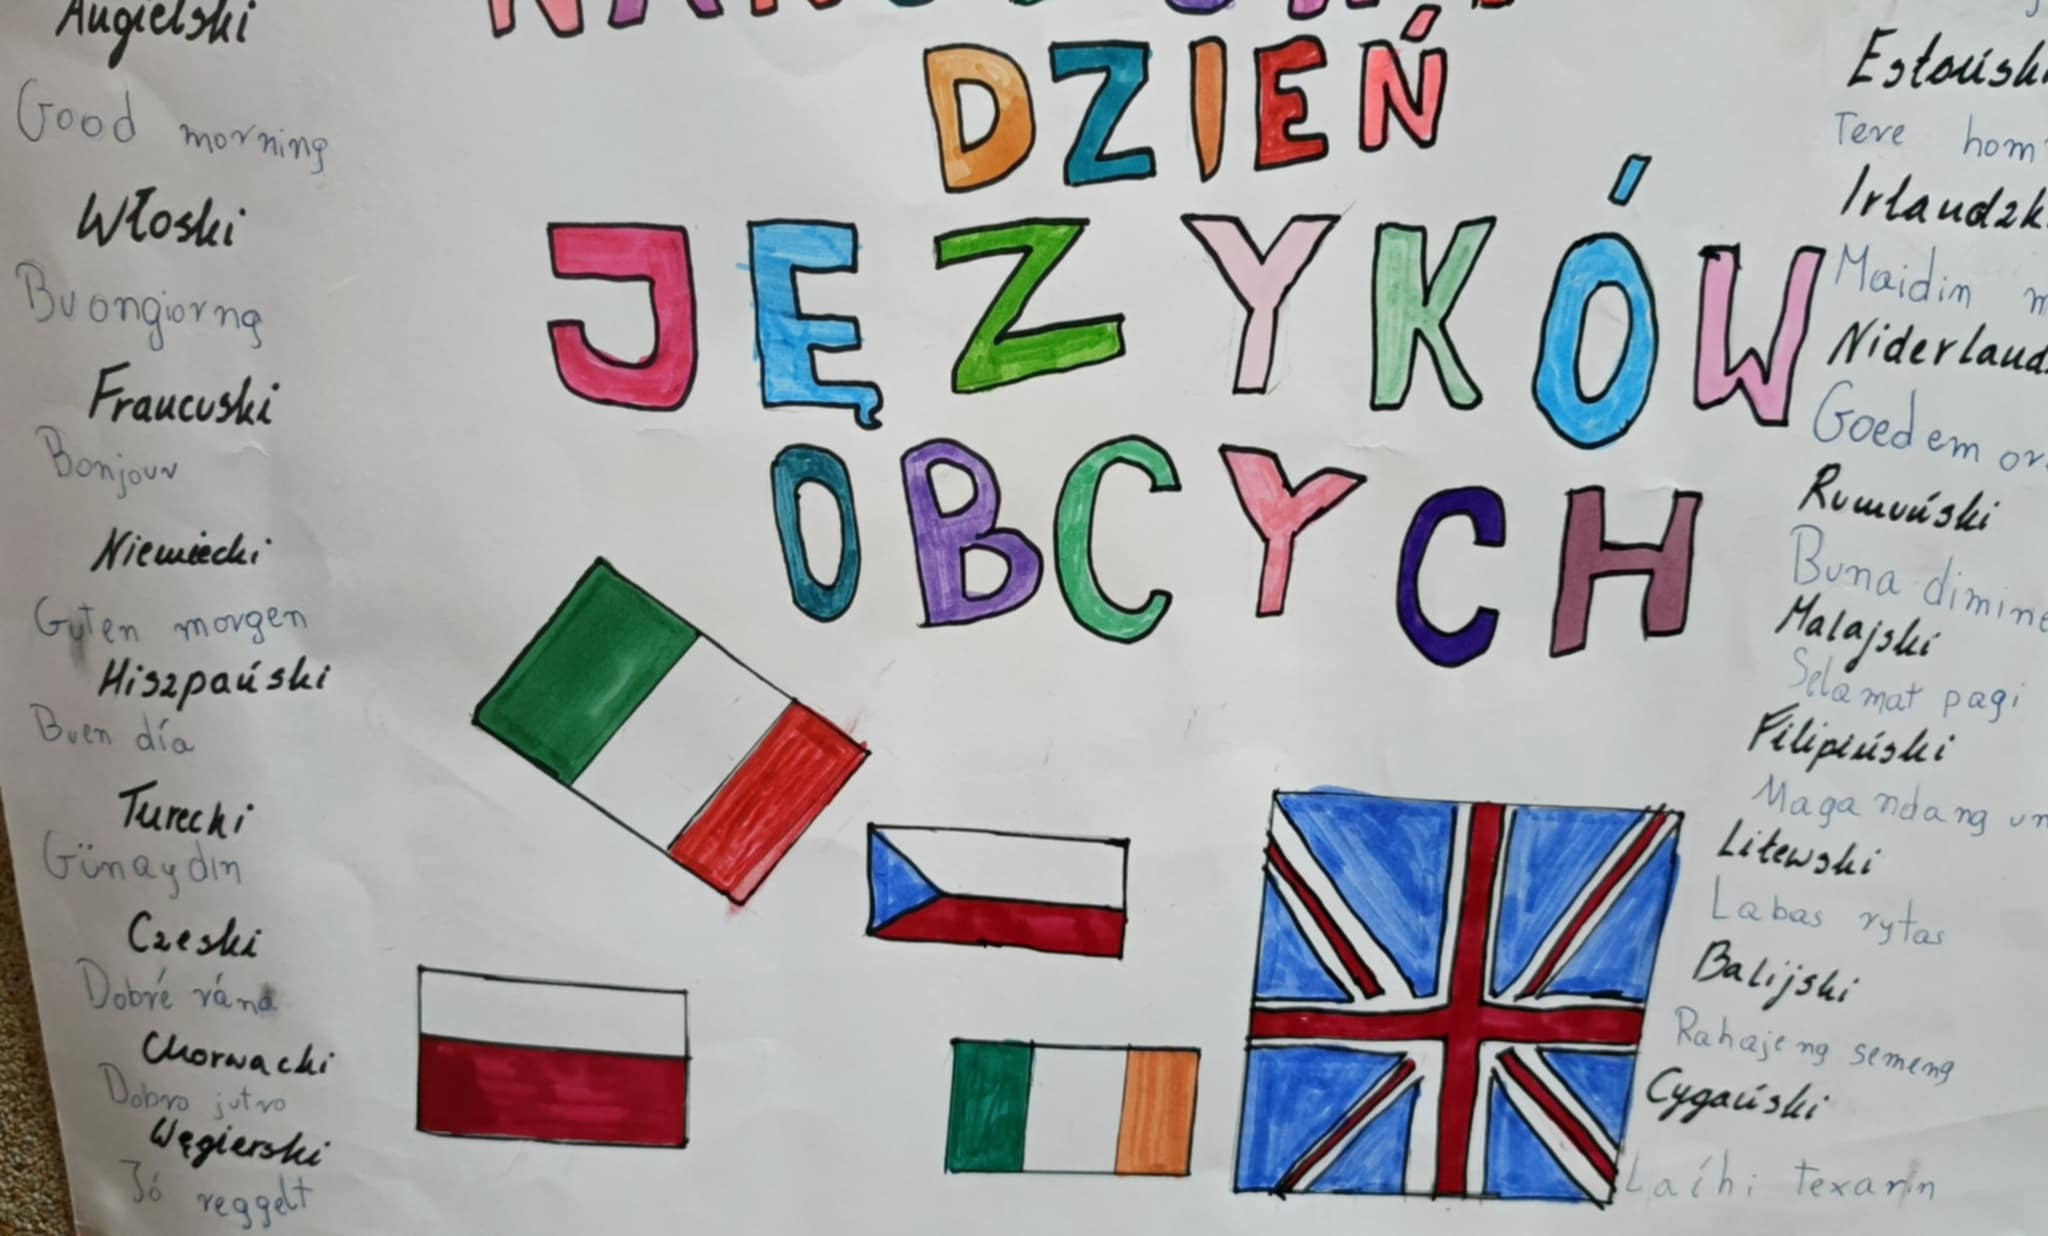 Angielski
Good morning
Włoski
Buongiorno
Francuski
Bonjour
Niemiecki
Guten morgen
Hiszpański
Buen día
Turecki
Günaydın
Czeski
Dobré ráno
Chorwacki
Dobro jutro
Węgierski
Jó reggelt
DZIEŃ
JĘZYKÓW
OBCYCH
Estoński
Tere hom
Irlandzk
Maidin m
Niderland
Goedemor
Rumuński
Buna dimine
Malajski
Selamat pagi
Filipiński
Magandang um
Litewski
Labas rytas
Balijski
Rahajeng semeng
Cygański
Laíhi texarin